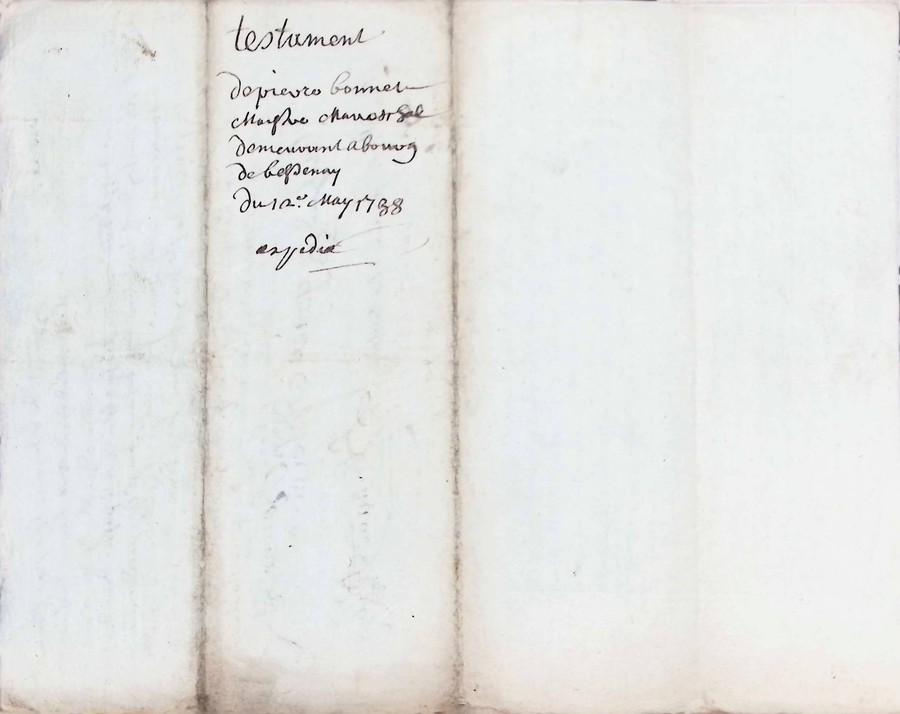 testament
de pierre bonnet
Maistre Mareschal
demeurant a bourg
de bessenay
du 12e. May 1738
expedié